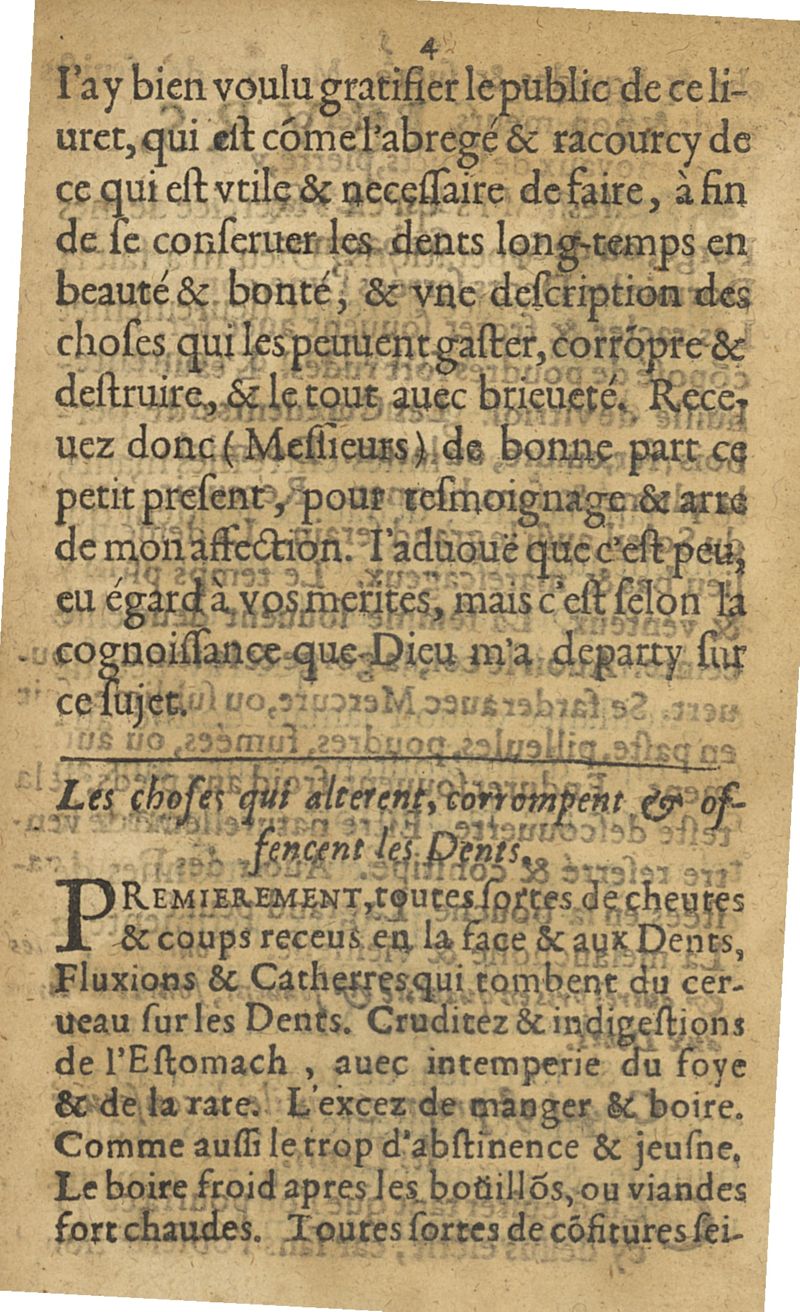 4
I'ay bien voulu gratifier le public de ce li-
uret, qui est cõme l'abregé & racourcy de
ce qui est vtile & necessaire de faire, à fin
de se conseruer les dents long-temps en
beauté & bonté, & vne description des
choses qui les peuuent gaster, corrõpre &
destruire, & le tout auec brieueté. Rece-
uez donc (Messieurs) de bonne part ce
petit present, pour tesmoignage & arre
de mon affection. I'aduouë que c'est peu,
eu égard à vos merites, mais c'est selon la
cognoissance que Dieu m'a departy sur
ce sujet.
Les choses qui alterent, corrompent & of-
fencent les Dents.
PREMIEREMENT, toutes sortes de cheutes
& coups receus en la face & aux Dents,
Fluxions & Catherres qui tombent du cer-
ueau sur les Dents. Cruditez & indigestions
de l'Estomach, auec intemperie du foye
& de la rate. L'excez de manger & boire.
Comme aussi le trop d'abstinence & jeusne.
Le boire froid apres les boüillõs, ou viandes
fort chaudes. Toutes sortes de cõfitures sei-